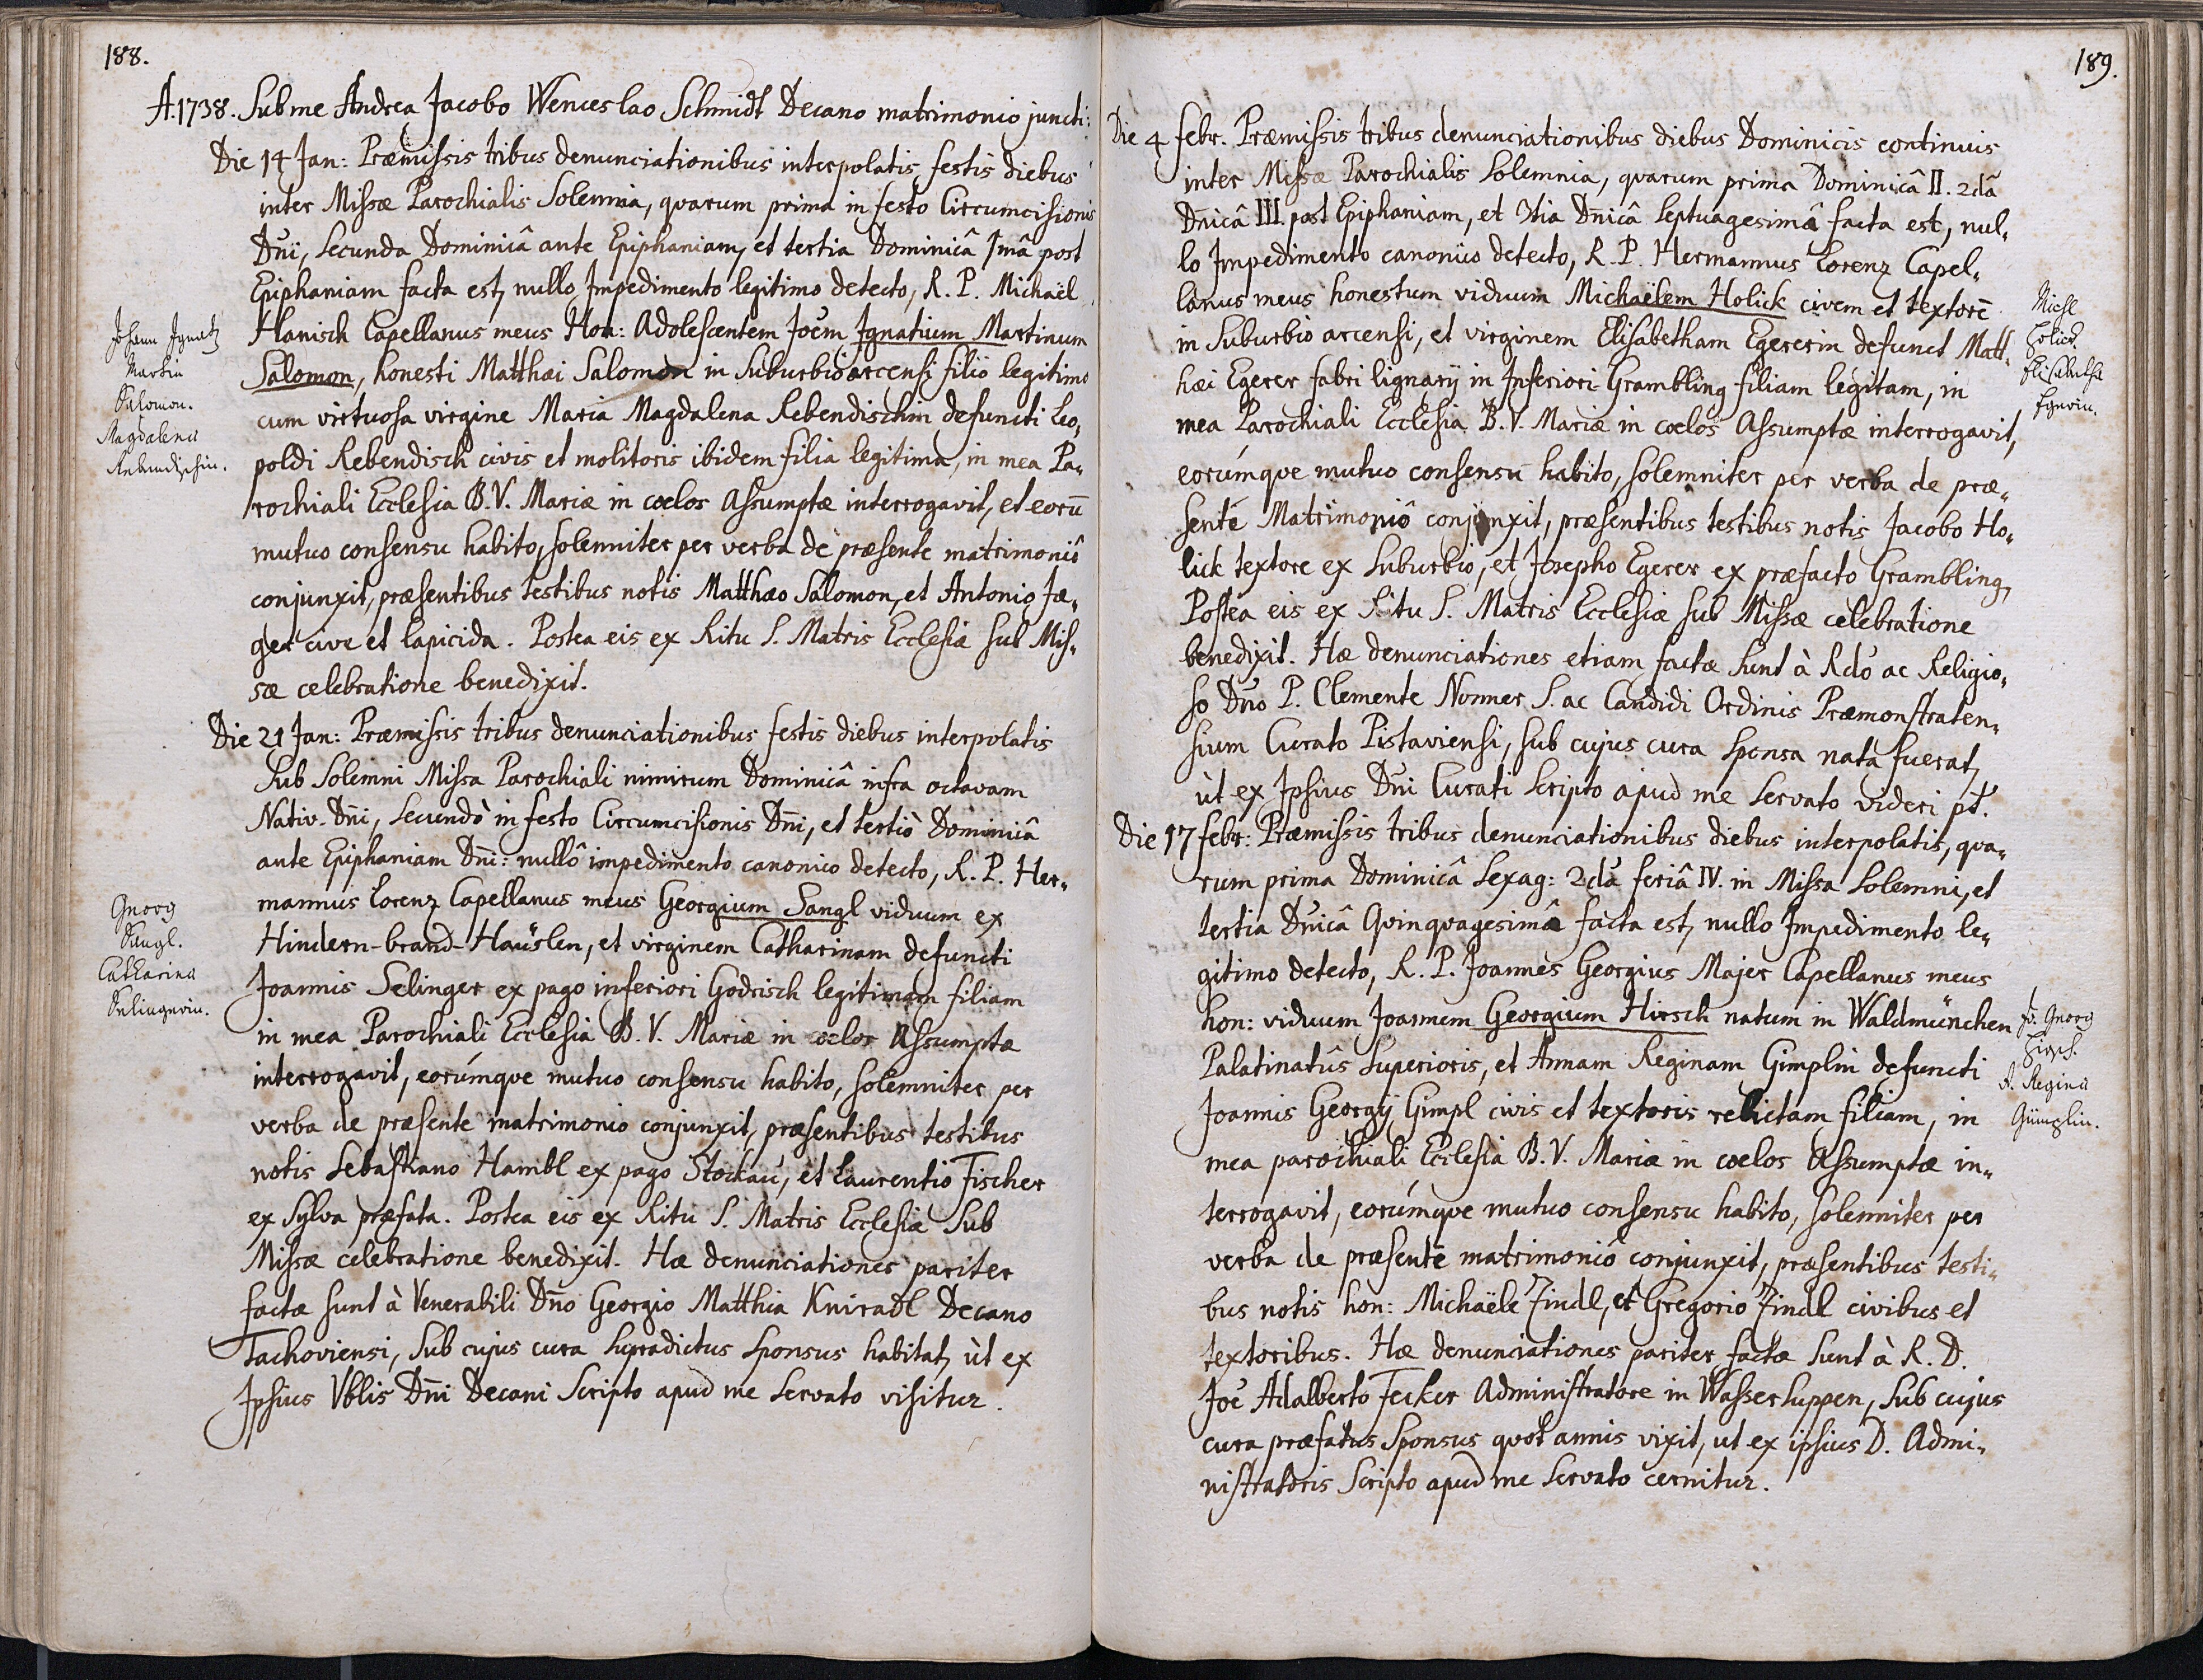 188.
A. 1738. Sub me Andrea Jacobo Wenceslao Schmidt Decano matrimonio juncti:
Die 14 Jan: Præmissis tribus denunciationibus interpolatis festis diebus
inter Missæ Parochialis Solemnia, qvarum prima in festo Circumcisionis
Dñi, Secunda Dominicâ ante Epiphaniam, et tertia Dominicâ Jmâ post
Epiphaniam facta est, nullo Jmpedimento legitimo detecto, R. P. Michaël
Hanisch Capellanus meus Hon: Adolescentem Joem Jgnatium Martinum
Johann Ignatz
Martin
Salomon.
Magdalena
Rebendischin.
Salomon, honesti Matthæi Salomon in Suburbio arcensi filio legitimo
cum virtuosa virgine Maria Magdalena Rebendischin defuncti Leo„
poldi Rebendisch civis et molitoris ibidem filia legitima, in mea Pa„
rochiali Ecclesia B. V. Mariæ in cœlos Assumptæ interrogavit, et eorū
mutuo consensu habito, solemniter per verba de præsente matrimoniô
conjunxit, præsentibus testibus notis Matthæo Salomon, et Antonio Jæ„
ger cive et lapicida. Postea eis ex Ritu S. Matris Ecclesiæ sub Mis„
sæ celebratione benedixit.
Die 21 Jan: Præmissis tribus denunciationibus festis diebus interpolatis
Sub Solemni Missa Parochiali nimirum Dominicâ infra octavam
Nativ. Dñi, Secundò in festo Circumcisionis Dñi, et tertiò Dominicâ
ante Epiphaniam Dñi: nullô impedimento canonico detecto, R. P. Her„
mannus Lorenz Capellanus meus Georgium Sangl viduum ex
Georg
Sangl.
Catharina
Selingerin.
Hindern-brand-Haüslen, et virginem Catharinam defuncti
Joannis Selinger ex pago inferiori Godrisch legitimam filiam
in mea Parochiali Ecclesia B. V. Mariæ in cœlos Assumptæ
interrogavit, eorúmqve mutuo consensu habito, solemniter per
verba de præsente matrimonio conjunxit, præsentibus testibus
notis Sebastiano Hambl ex pago Stockau, et Laurentio Fischer
ex Sylva præfata. Postea eis ex Ritu S. Matris Ecclesiæ Sub
Missæ celebratione benedixit. Hæ denunciationes pariter
factæ sunt à Venerabili Dño Georgio Matthia Kniradl Decano
Tachoviensi, Sub cujus cura Supradictus Sponsus habitat, ùt ex
Jpsius Vblis Dñi Decani Scripto apud me Servato visitur.
189.
Die 4 febr. Præmissis tribus denunciationibus diebus Dominicis continuis
inter Missæ Parochialis Solemnia, qvarum prima Dominicâ II. 2dâ
Dnicâ III. post Epiphaniam, et 3tia Dñicâ Septuagesimâ facta est, nul„
lo Jmpedimento canonico detecto, R. P. Hermannus Lorenz Capel„
lanus meus honestum viduum Michaëlem Holick civem et textorē
Michl
Holick.
Elisabetha
Egerin.
in Suburbio arcensi, et virginem Elisabetham Egererin defunct Matt„
hæi Egerer fabri lignarÿ in Jnferiori Grambling filiam legitam, in
mea Parochiali Ecclesia B. V. Mariæ in cœlos Assumptæ interrogavit,
eorúmqve mutuo consensu habito, solemniter per verba de præ„
sente Matrimoniô conjunxit, præsentibus testibus notis Jacobo Ho„
lick textore ex Suburbio, et Josepho Egerer ex præfacto Grambling,
Postea eis ex Ritu S. Matris Ecclesiæ sub Missæ celebratione
benedixit. Hæ denunciationes etiam factæ sunt à Rdo ac Religio„
so Dño P. Clemente Nonner S. ac Candidi Ordinis Præmonstraten„
sium Curato Pistaviensi, sub cujus cura Sponsa nata fuerat,
ùt ex Jpsius Dñi Curati Scripto apud me Servato videri pt.
Die 17 febr: Præmissis tribus denunciationibus diebus interpolatis, qva„
rum prima Dominicâ Sexag: 2dâ feriâ IV. in Missa Solemni, et
tertia Dñicâ Qvinqvagesimâ facta est, nullo Jmpedimento le„
gitimo detecto, R. P. Joannes Georgius Majer Capellanus meus
hon: viduum Joannem Georgium Hirsch natum in Waldmünchen
Jo. Georg
Hirsch.
A. Regina
Gümplin.
Palatinatûs Superioris, et Annam Reginam Gimplin defuncti
Joannis Georgÿ Gimpl civis et textoris relictam filiam, in
mea parochiali Ecclesia B. V. Mariæ in cœlos Assumptæ in„
terrogavit, eorúmqve mutuo consensu habito, solemniter per
verba de præsente matrimoniô conjunxit, præsentibus testi„
bus notis hon: Michaële Zindl, et Gregorio Zindl civibus et
textoribus. Hæ denunciationes pariter factæ sunt à R. D.
Joe Adalberto Fecker Administratore in Wassersuppen, Sub cujus
cura præfatus Sponsus qvot annis vixit, ut ex ipsius D. Admi„
nistratoris Scripto apud me Servato cernitur.